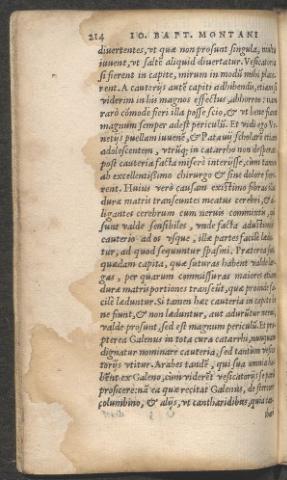 214 IO. BAPT. MONTANI
diuertentes, vt quæ non prosunt singula, multa
iuuent, vt saltẽ aliquid diuertatur. Vesicatoria
si fierent in capite, mirum in modũ mihi place
rent. A cauterijs autẽ capiti adhibendis, etiam si
viderim in his magnos effectus, abhorreo: nam
rarò cõmode fieri illa posse scio, & vt bene fiant
magnum semper adest periculũ. Et vidi ego Ve
netijs puellam iuuenẽ, & Patauij scholarẽ etiam
adolescentem, vtrũq; in catarrho non desperato
post cauteria facta miserè interijsse, cum tamen
ab excellentissimo chirurgo & sine dolore fierent
rent. Huius verò causam existimo fibras illas
duræ matris transeuntes meatus cerebri, &
ligantes cerebrum cum neruis commixtu,
sunt valde sensibiles, vnde facta adustione
cauterio ad os vsque, illæ partes facilè lædun
tur, ad quod sequuntur spasmi. Præterea sunt
quædam capita, quæ suturas habent valde la-
gas, per quarum commissuras maiores etiam
duræ matris portiones transeũt, quæ proinde fa-
cilè læduntur. Si tamen hæc cauteria in capite be
ne fiunt, & non læduntur, aut adurũtur nerui,
valde prosunt, sed est magnum periculũ. Et pro
pterea Galenus in tota cura catarrhi, nunquam
dignatur nominare cauteria, sed tantùm vesica
torijs vtitur. Arabes tandẽ, qui sua omnia ha
bẽnt ex Galeno, cùm viderẽt vesicatorijs se parũ
proficere: nã ea quæ recitat Galenus, de stercore
columbino, & alijs, vt cantharidibus, quia ta-